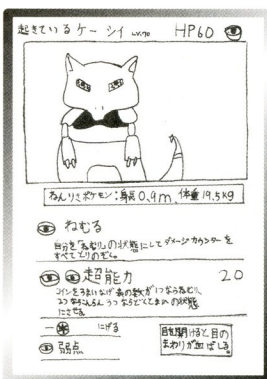 起きているケーシィ LV.70 HP60
ねんりきポケモン：身長0.9m, 体重19.5kg
ねむる
自分を「ねむり」の状態にしてダメージカウンターを
すべてとりのぞく。
超能力 20
コインをうまいなげ 表の数が1つならねむり、
2つならこんらん 3つならどくとまひの状態
にさせる。
にげる
弱点
目を開けると目の
まわりが血ばしる。